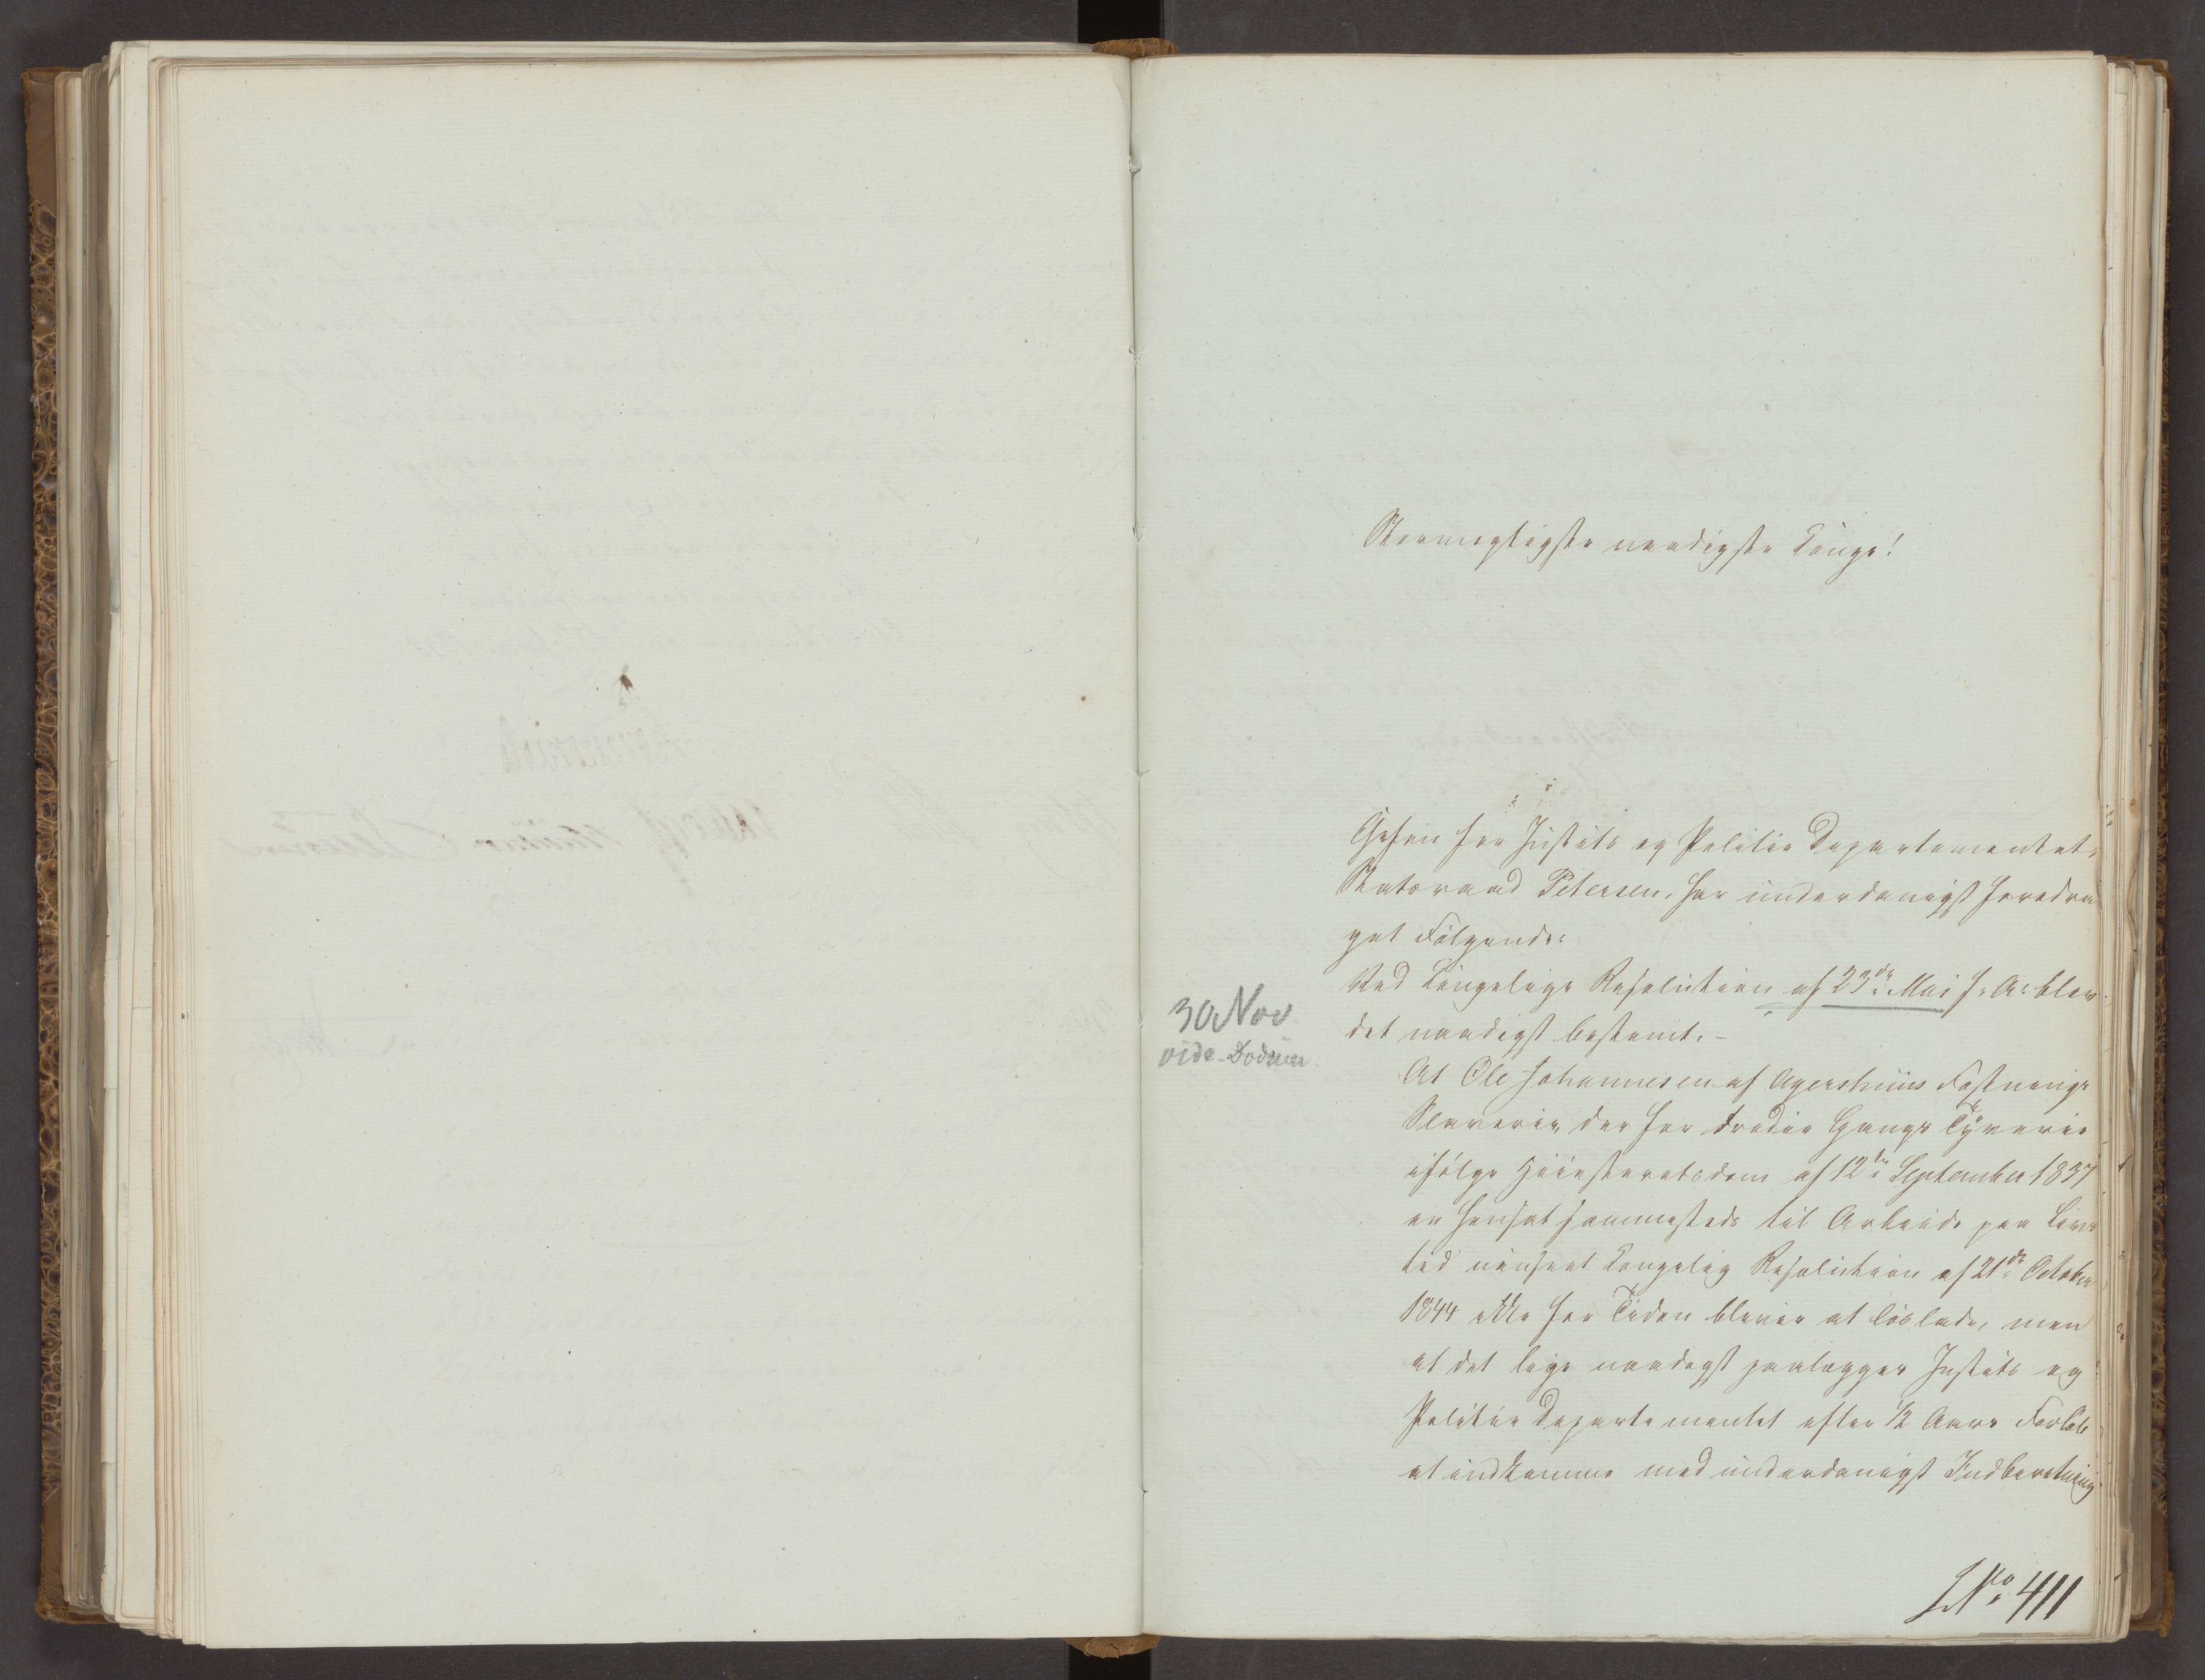 Stormægtigste naadigste Konge!
Chefen for Justits og Politie Departementet,
Statsraad Petersen, har underdanigst foredra
get Følgende:
Ved Kongelige Resolution af 23de Mai f. A. blev
det naadigst bestemt. -
30 Nov
At Ole Johannesen af Agershuus Fæstnings
Slaverie, der for tredie Gangs Tyverie
ifølge Høiesteretsdom af 12te September 1837
er hensat sammesteds til Arbeide paa Livs
tid uanseet Kongelig Resolution af 21de October
1844 ikke for Tiden bliver at løslade, men
at det lige naadigst paalægges Justits og
Politie Departementet efter 1/2 Aars Forløb
at indkomme med underdanigst Indberetning
No 411